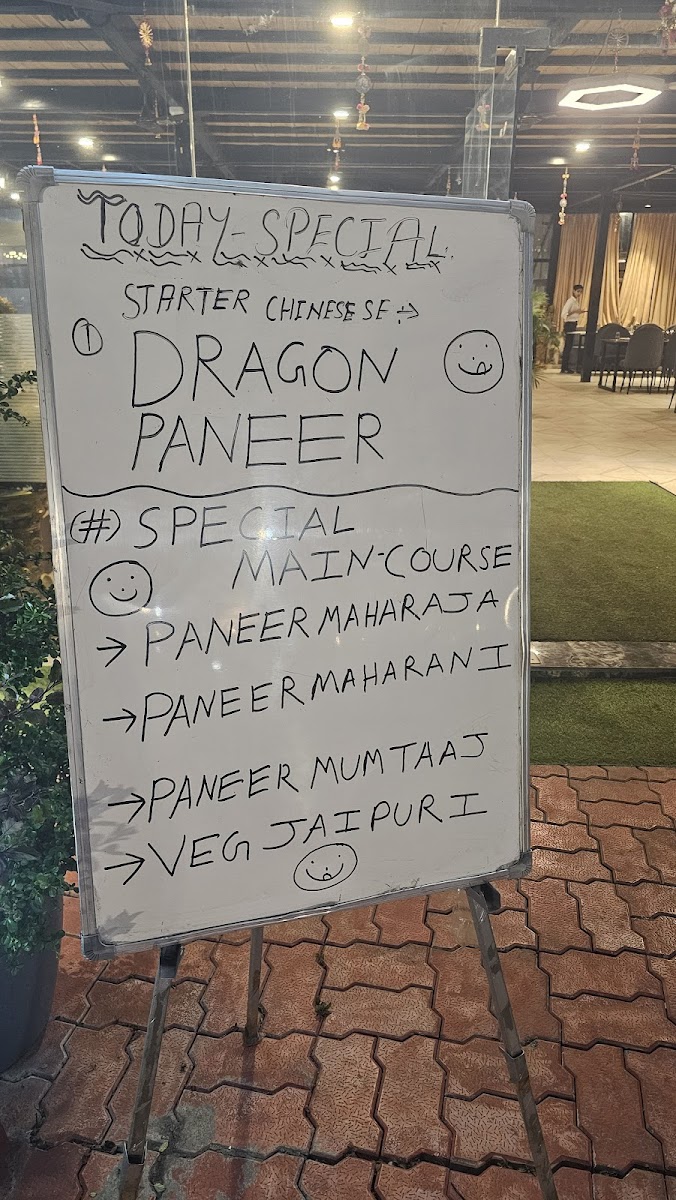 TODAY-SPECIAL
STARTER CHINESESE →
① DRAGON
PANEER
(#) SPECIAL
MAIN-COURSE
→ PANEER MAHARAJA
→ PANEER MAHARANI
→ PANEER MUMTAAJ
→ VEG JAIPURI